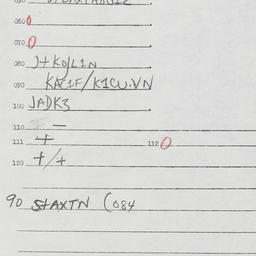 060 0
070 0
080 J+KD/L1N
090 KAE1F/K1CW.VN
100 JADK3
110 —
111 + 112 0
120 +/+
90 StAXTN (084